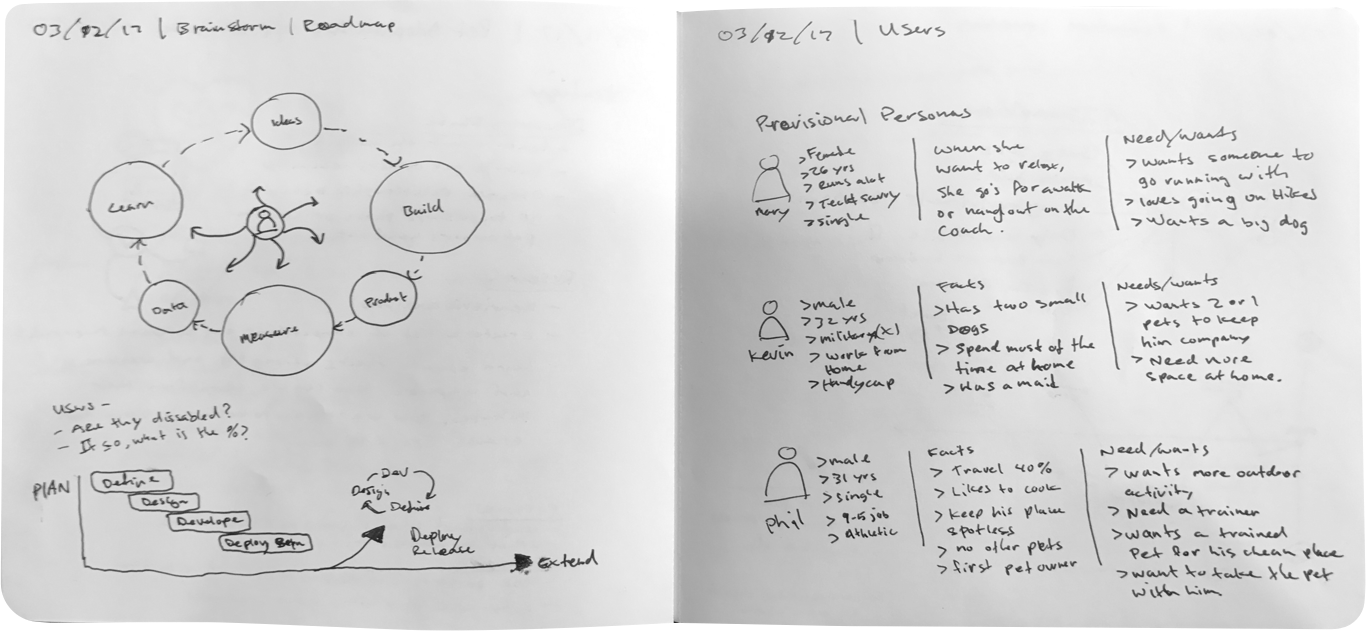 03/02/17 | Brainstorm | Roadmap
Ideas
Build
Product
Measure
Data
Learn
Users -
- Are they dissabled?
- If so, what is the %?
PLAN
Define
Design
Develope
Deploy Beta
Dev
Design
Define
Deploy
Release
Extend
03/02/17 | Users
Provisional Personas
Mary
> Female
> 26 yrs
> Runs alot
> Tech savvy
> single
when she
want to relax,
she go's for a walk
or hangout on the
coach.
Need/wants
> Wants someone to
go running with
> loves going on Hikes
> Wants a big dog
Kevin
> male
> 32 yrs
> military(x)
> work from
Home
> Handycap
Facts
> Has two small
Dogs
> Spend most of the
time at home
> Has a maid
Needs/wants
> Wants 2 or 1
pets to keep
him company
> Need more
space at home.
Phil
> male
> 31 yrs
> single
> 9-5 job
> Athletic
Facts
> Travel 40%
> Likes to cook
> Keep his place
spotless
> no other pets
> first pet owner
Need/wants
> wants more outdoor
activity
> Need a trainer
> wants a trained
Pet for his clean place
> want to take the pet
with him